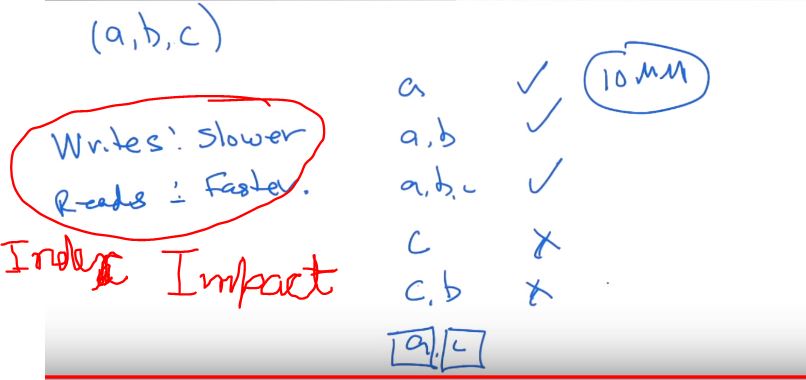 (a,b,c)
Writes: Slower
Reads: Faster.
Index Impact
a ✓
a,b ✓
a,b,c ✓
c ✗
c,b ✗
a, c
10 MM